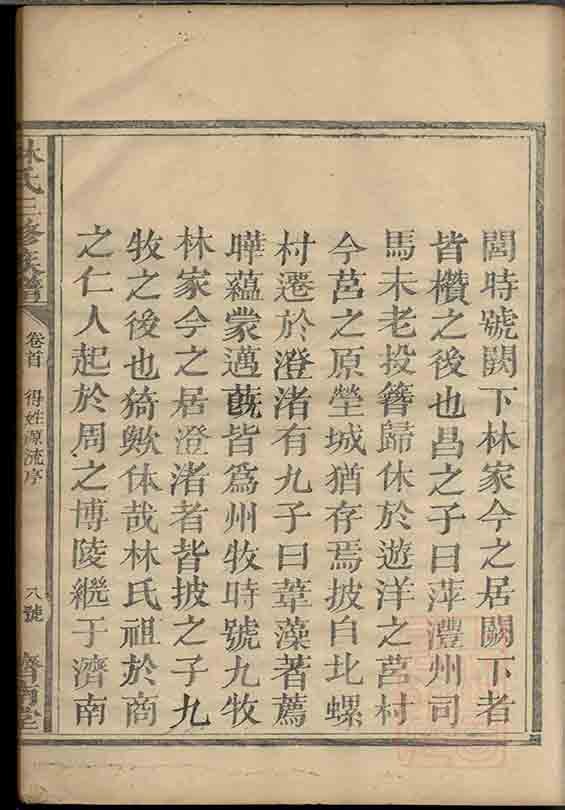 閭時號闕下林家今之居闕下者
皆欑之後也昌之子曰萍灃州司
馬未老投簪歸休於遊洋之莒村
今莒之原塋城猶存焉披自北螺
村遷於澄渚有九子曰葦藻著薦
曄蘊蒙邁蔇皆爲州牧時號九牧
林家今之居澄渚者皆披之子九
牧之後也猗歟休哉林氏祖於商
之仁人起於周之博陵繼于濟南
林氏三修族譜
卷首 得姓源流序
八號
濟南堂